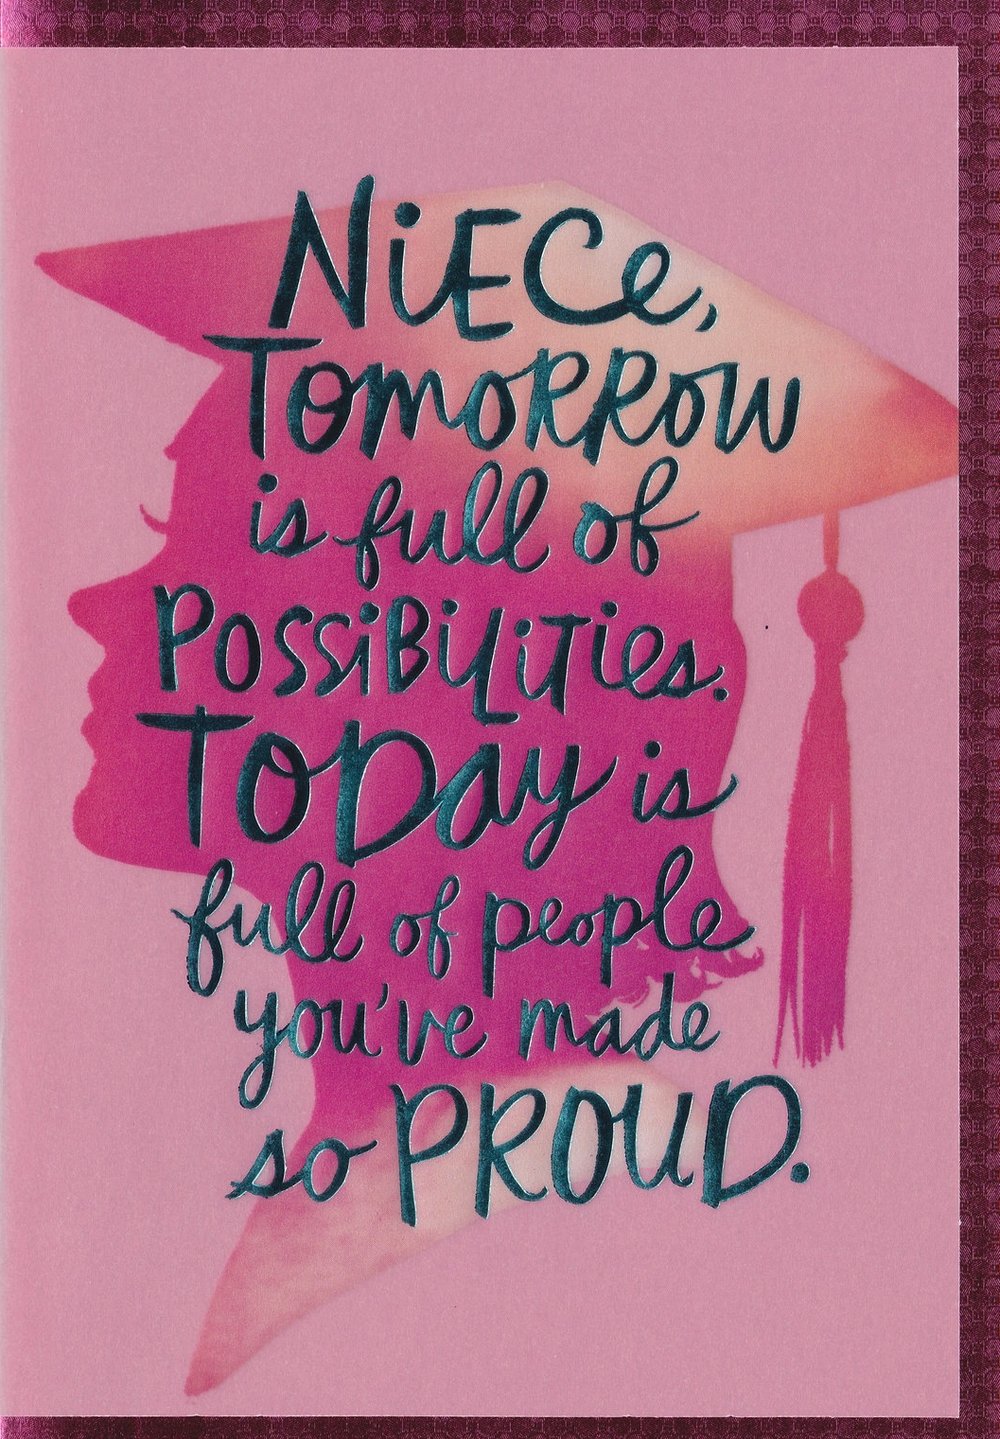 NiECe,
TOMORROW
is full of
POSSiBiLiTies.
TODAY is
full of people
you've made
so PROUD.